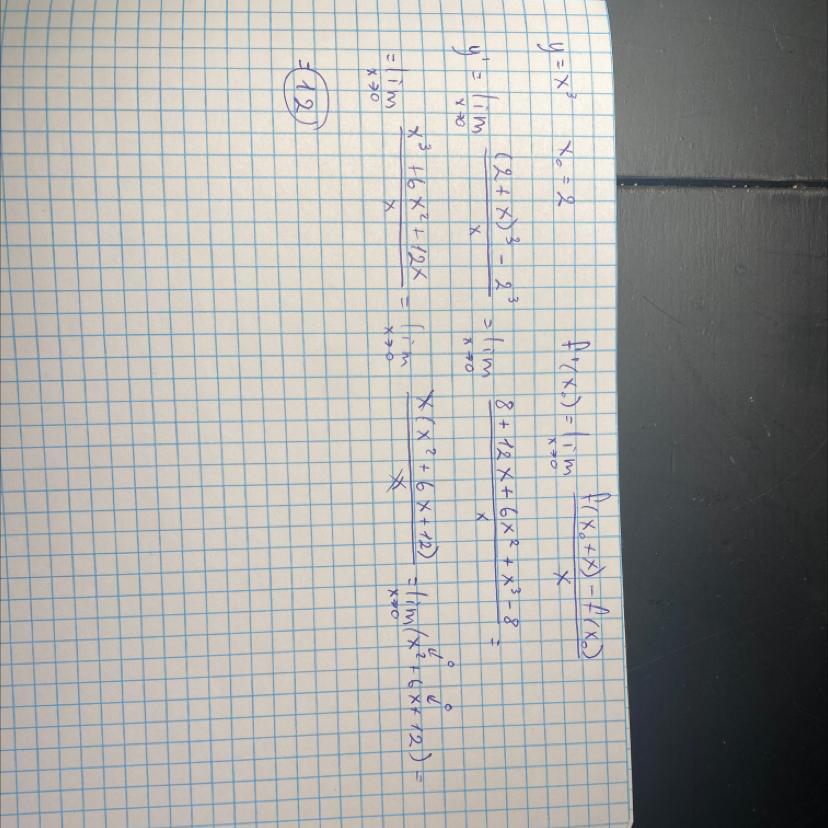 y = x³ x₀ = 2 f'(x₀) = lim x→0 f(x₀+x) - f(x₀) / x
y' = lim x→0 (2+x)³ - 2³ / x = lim x→0 8 + 12x + 6x² + x³ - 8 / x =
= lim x→0 x³ + 6x² + 12x / x = lim x→0 x(x² + 6x + 12) / x = lim x→0 (x² →0 + 6x →0 + 12) =
= 12